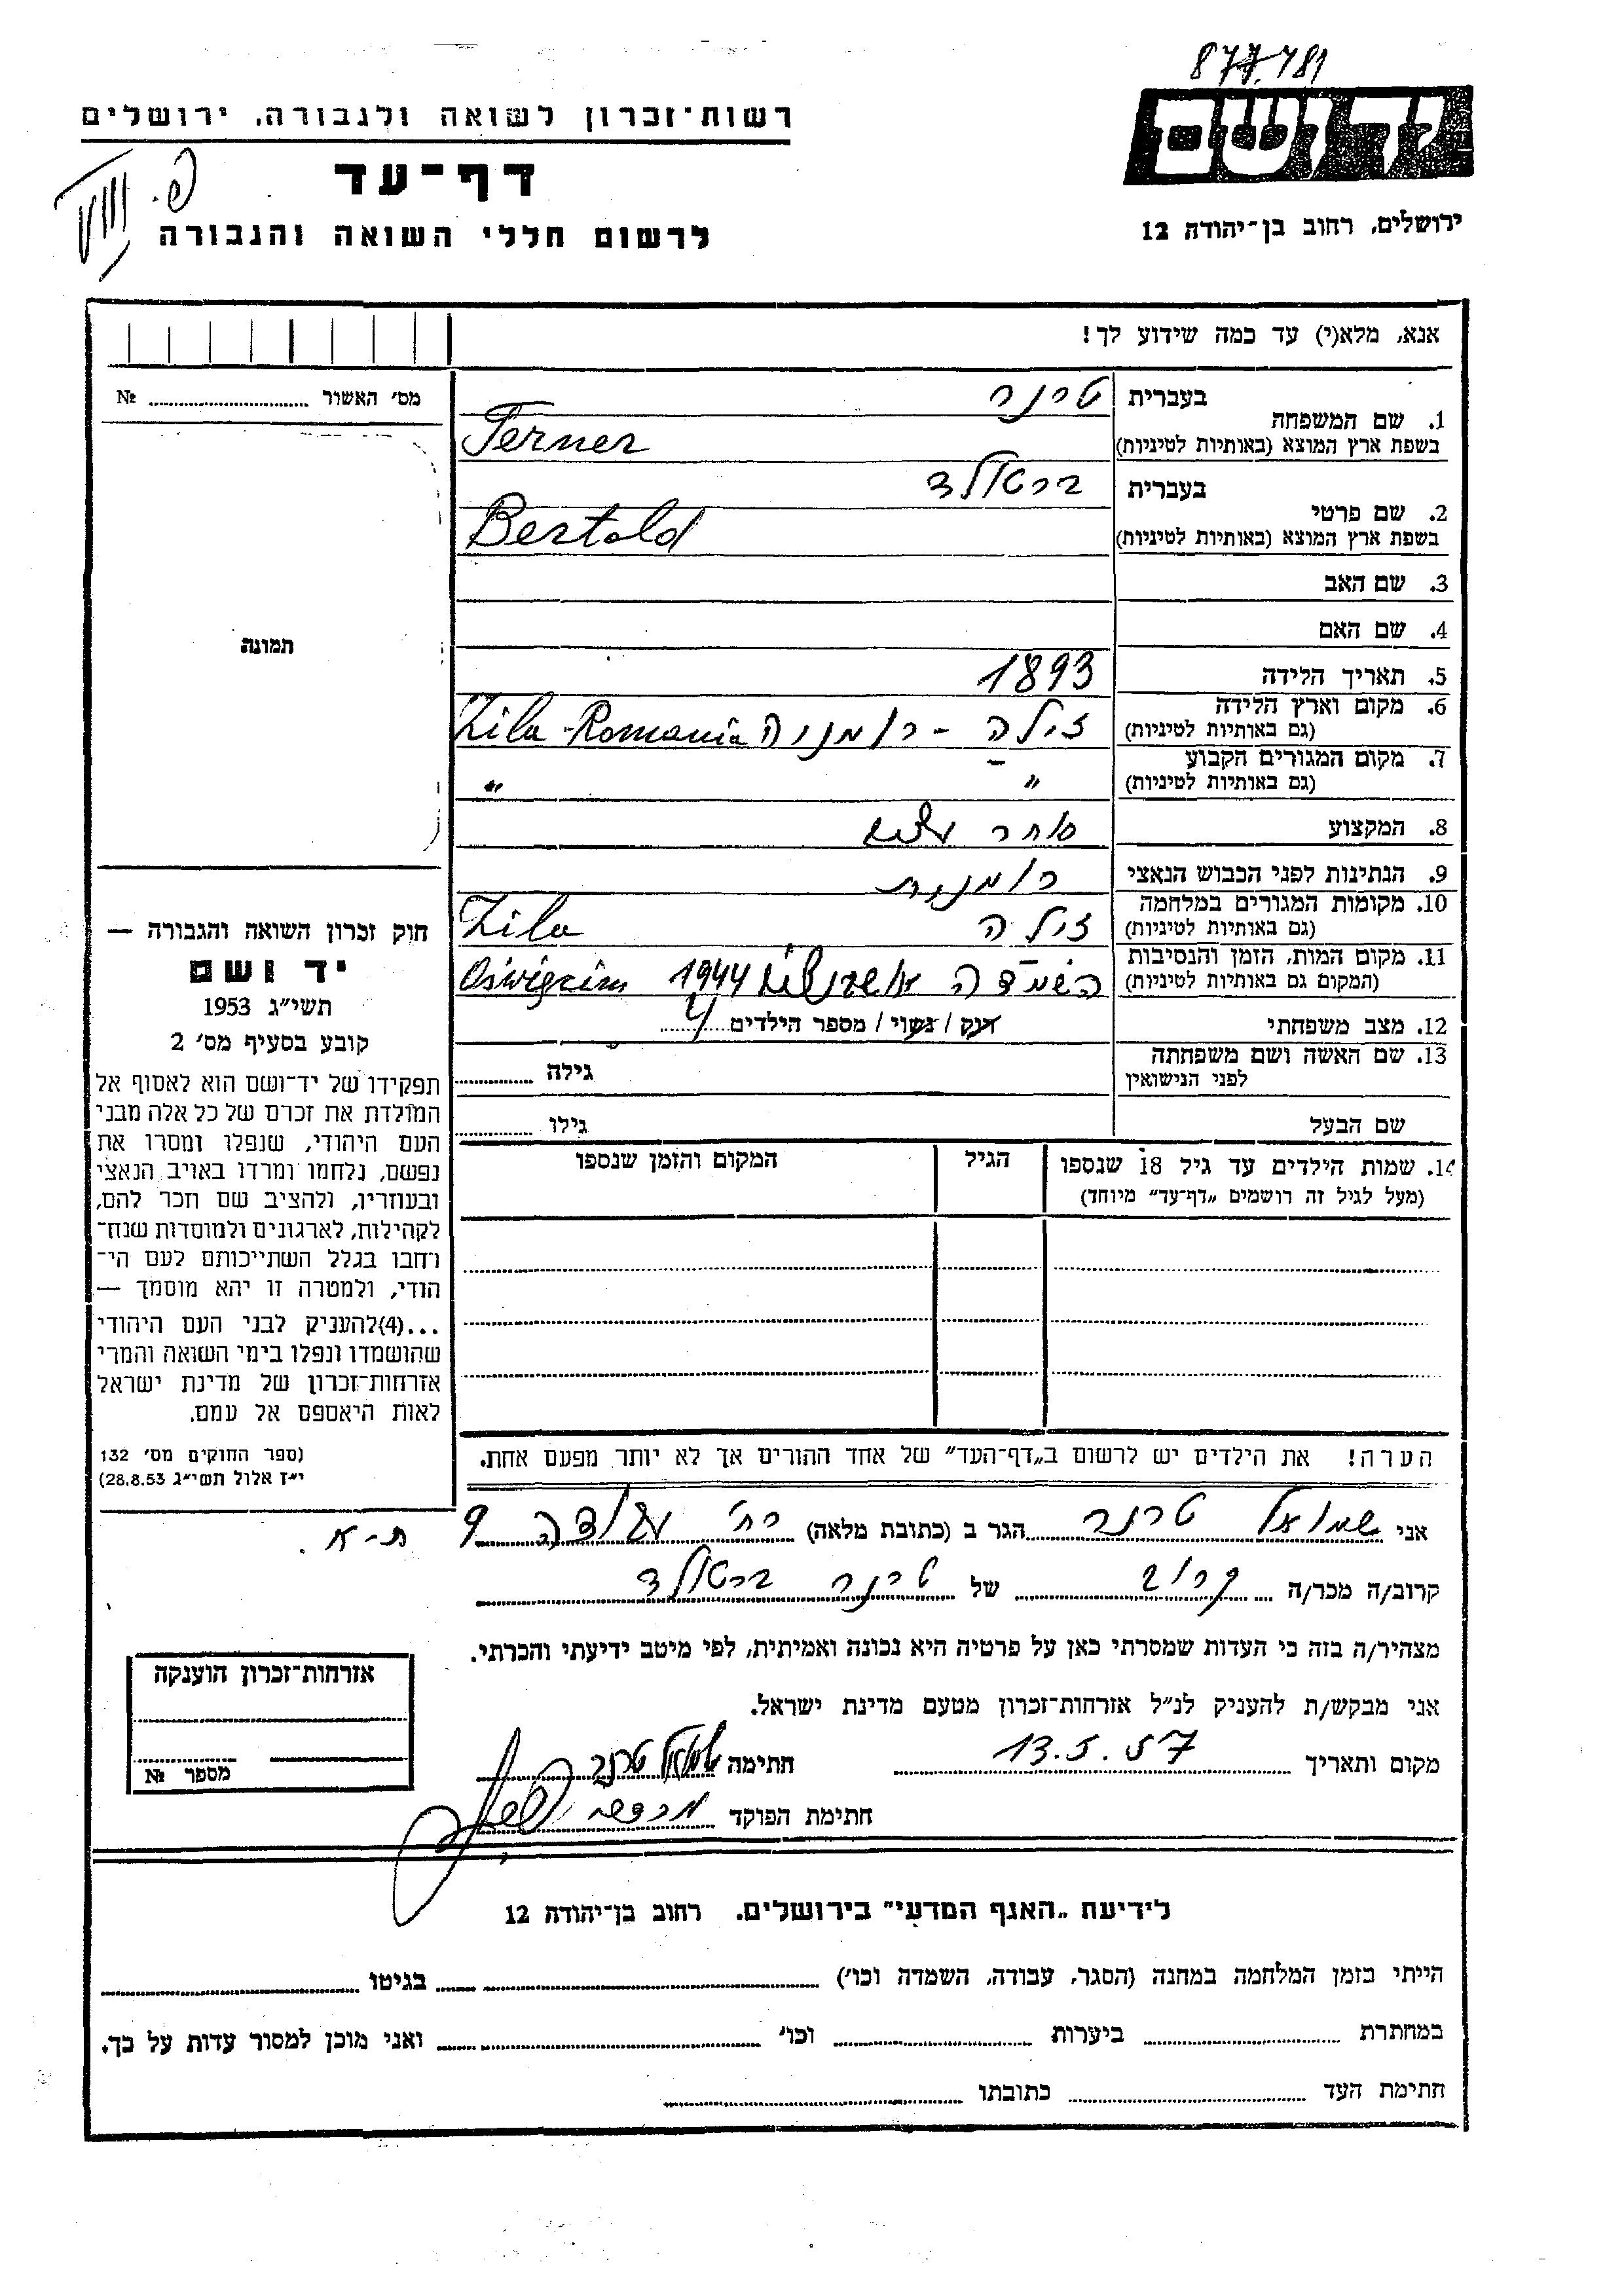 877.781
יד ושם
רשות-זכרון לשואה ולגבורה, ירושלים
דף-עד
לרשום חללי השואה והגבורה
ירושלים, רחוב בן-יהודה 12
אנא, מלא(י) עד כמה שידוע לך!
מס' האשור № 
1. שם המשפחה בעברית טרנר
בשפת ארץ המוצא (באותיות לטיניות) Terner
2. שם פרטי בעברית ברטולד
בשפת ארץ המוצא (באותיות לטיניות) Bertold
3. שם האב
4. שם האם
תמונה
5. תאריך הלידה 1893
6. מקום וארץ הלידה (גם באותיות לטיניות) זילה - רומניה Zila-Romania
7. מקום המגורים הקבוע (גם באותיות לטיניות) " "
8. המקצוע סוחר
9. הנתינות לפני הכבוש הנאצי רומנית
10. מקומות המגורים במלחמה (גם באותיות לטיניות) זילה Zila
11. מקום המות, הזמן והנסיבות (המקום גם באותיות לטיניות) השמדה 1944 Oświęcim
12. מצב משפחתי רווק / נשוי / מספר הילדים 4
13. שם האשה ושם משפחתה לפני הנישואין גילה
שם הבעל גילו
14. שמות הילדים עד גיל 18 שנספו הגיל המקום והזמן שנספו
(מעל לגיל זה רושמים "דף-עד" מיוחד)
הערה! את הילדים יש לרשום ב"דף-העד" של אחד ההורים אך לא יותר מפעם אחת.
חוק זכרון השואה והגבורה —
יד ושם
תשי"ג 1953
קובע בסעיף מס' 2
תפקידו של יד-ושם הוא לאסוף אל
המולדת את זכרם של כל אלה מבני
העם היהודי, שנפלו ומסרו את
נפשם, נלחמו ומרדו באויב הנאצי
ובעוזריו, ולהציב שם וזכר להם,
לקהילות, לארגונים ולמוסדות שנח-
רבו בגלל השתייכותם לעם הי-
הודי, ולמטרה זו יהא מוסמך —
...(4) להעניק לבני העם היהודי
שהושמדו ונפלו בימי השואה והמרי
אזרחות-זכרון של מדינת ישראל
לאות היאספם אל עמם.
(ספר החוקים מס' 132
י"ז אלול תשי"ג 28.8.53)
אני שמואל טרנר הגר ב (כתובת מלאה) רח' 9 ת-א.
קרוב/ה מכר/ה קרוב של טרנר ברטולד
מצהיר/ה בזה כי העדות שמסרתי כאן על פרטיה היא נכונה ואמיתית, לפי מיטב ידיעתי והכרתי.
אני מבקש/ת להעניק לנ"ל אזרחות-זכרון מטעם מדינת ישראל.
מקום ותאריך 13.5.57 חתימה שמואל טרנר
חתימת הפוקד
אזרחות-זכרון הוענקה
מספר №
לידיעת "האגף המדעי" בירושלים. רחוב בן-יהודה 12
הייתי בזמן המלחמה במחנה (הסגר, עבודה, השמדה וכו') בגיטו
במחתרת ביערות וכו' ואני מוכן למסור עדות על כך.
חתימת העד כתובתו